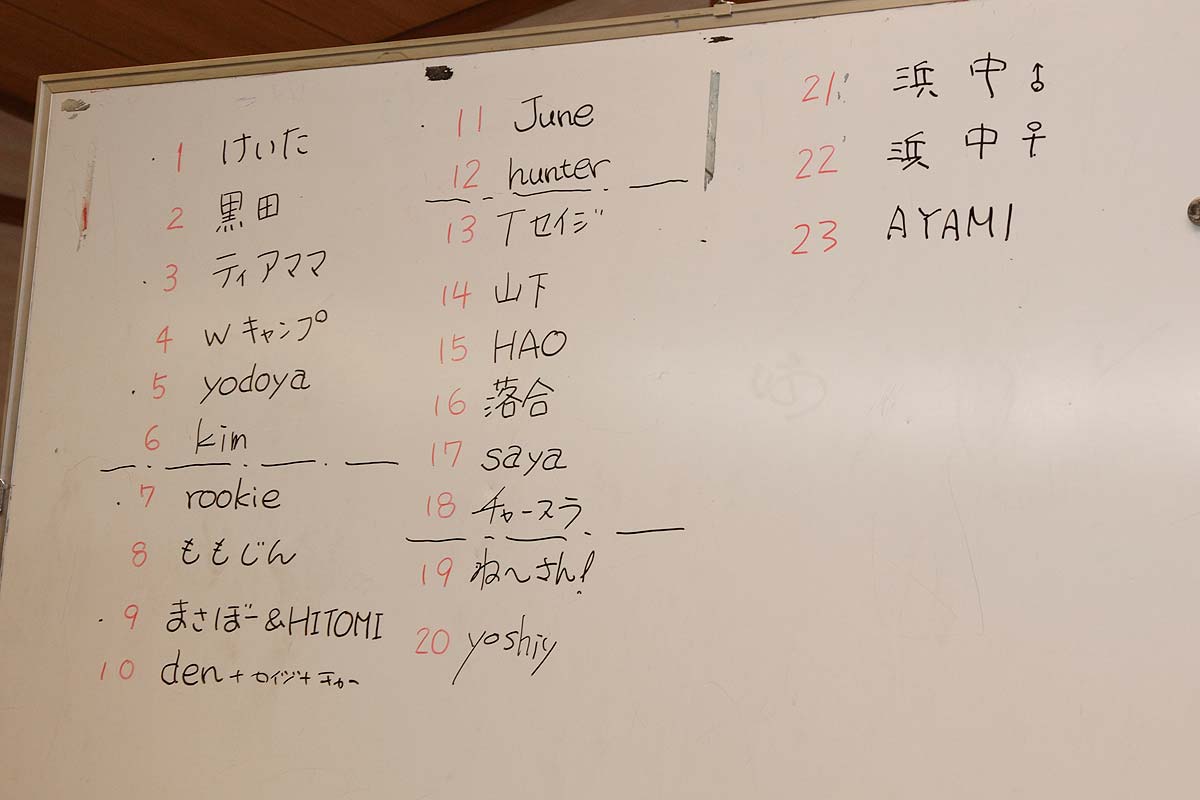 1 けいた
2 黒田
3 ティアママ
4 Wキャンプ
5 yodoya
6 kim
7 rookie
8 ももじん
9 まさぼー&HITOMI
10 den+セイジ+チャー
11 June
12 hunter
13 Tセイジ
14 山下
15 HAO
16 落合
17 saya
18 チャースラ
19 ね〜さん!
20 yoshiy
21 浜中♂
22 浜中♀
23 AYAMI